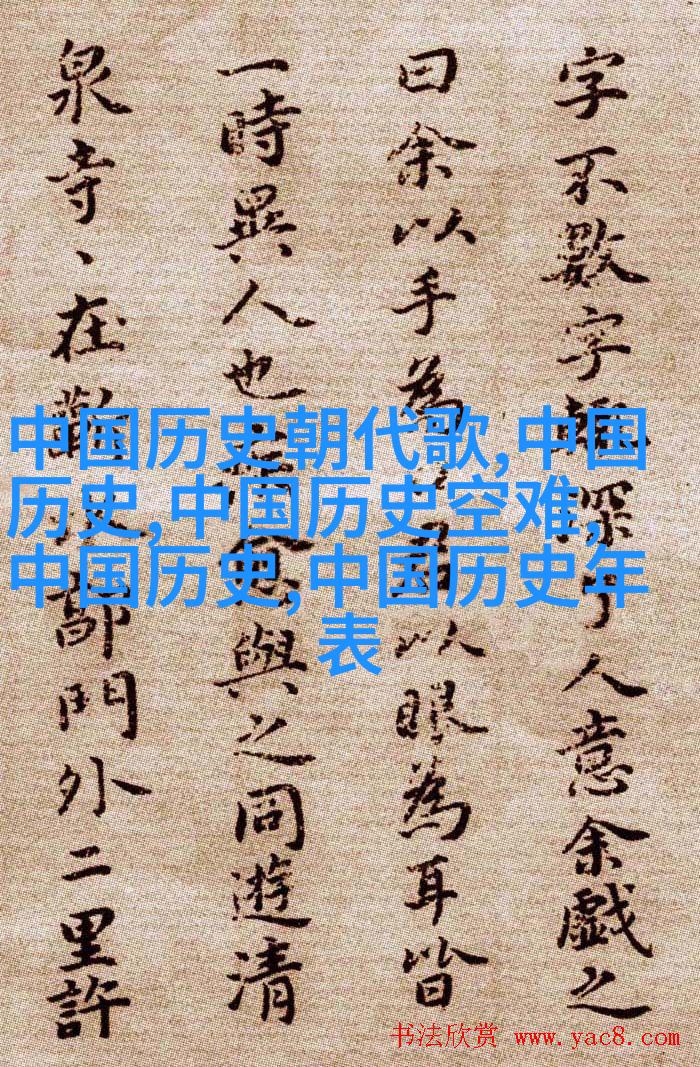 字不數字深了人意余戲之
曰余以手為君以眼為耳皆
一時異人也愈與之同遊清
泉寺、在蘄郭門外二里許
中国历史朝代歌,中国
历史,中国历史空难,
中国历史,中国历史年
表
书法欣赏 www.yac8.com